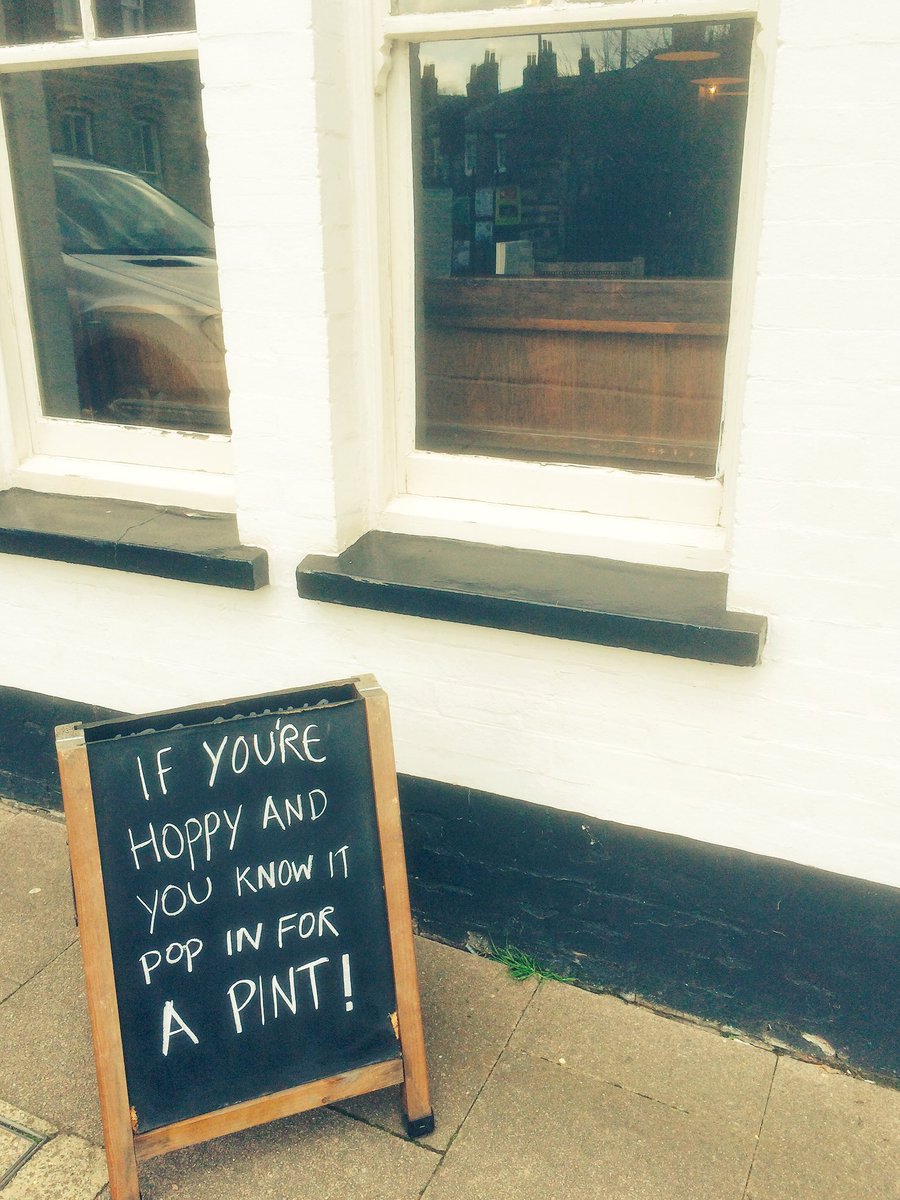 IF YOU'RE
HOPPY AND
YOU KNOW IT
POP IN FOR
A PINT!